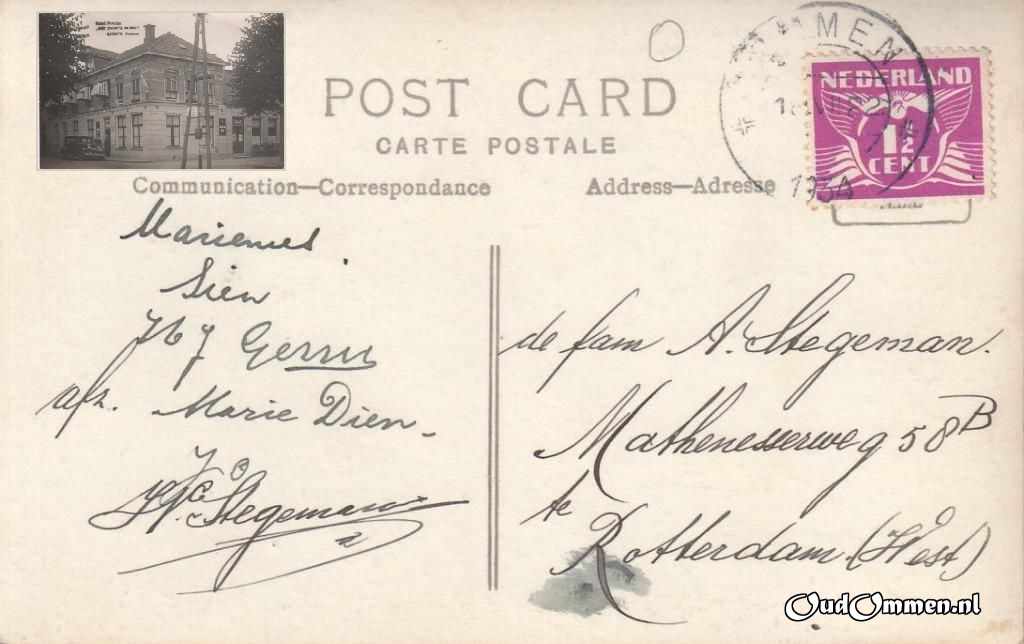 POST CARD
CARTE POSTALE
Communication—Correspondance
Address—Adresse
OMMEN
1934
NEDERLAND
1½
CENT
Sien
Gerrit
afz. Marie Dien
Stegeman
de fam A. Stegeman.
Mathenesserweg 58B
te
Rotterdam. (West)
OudOmmen.nl